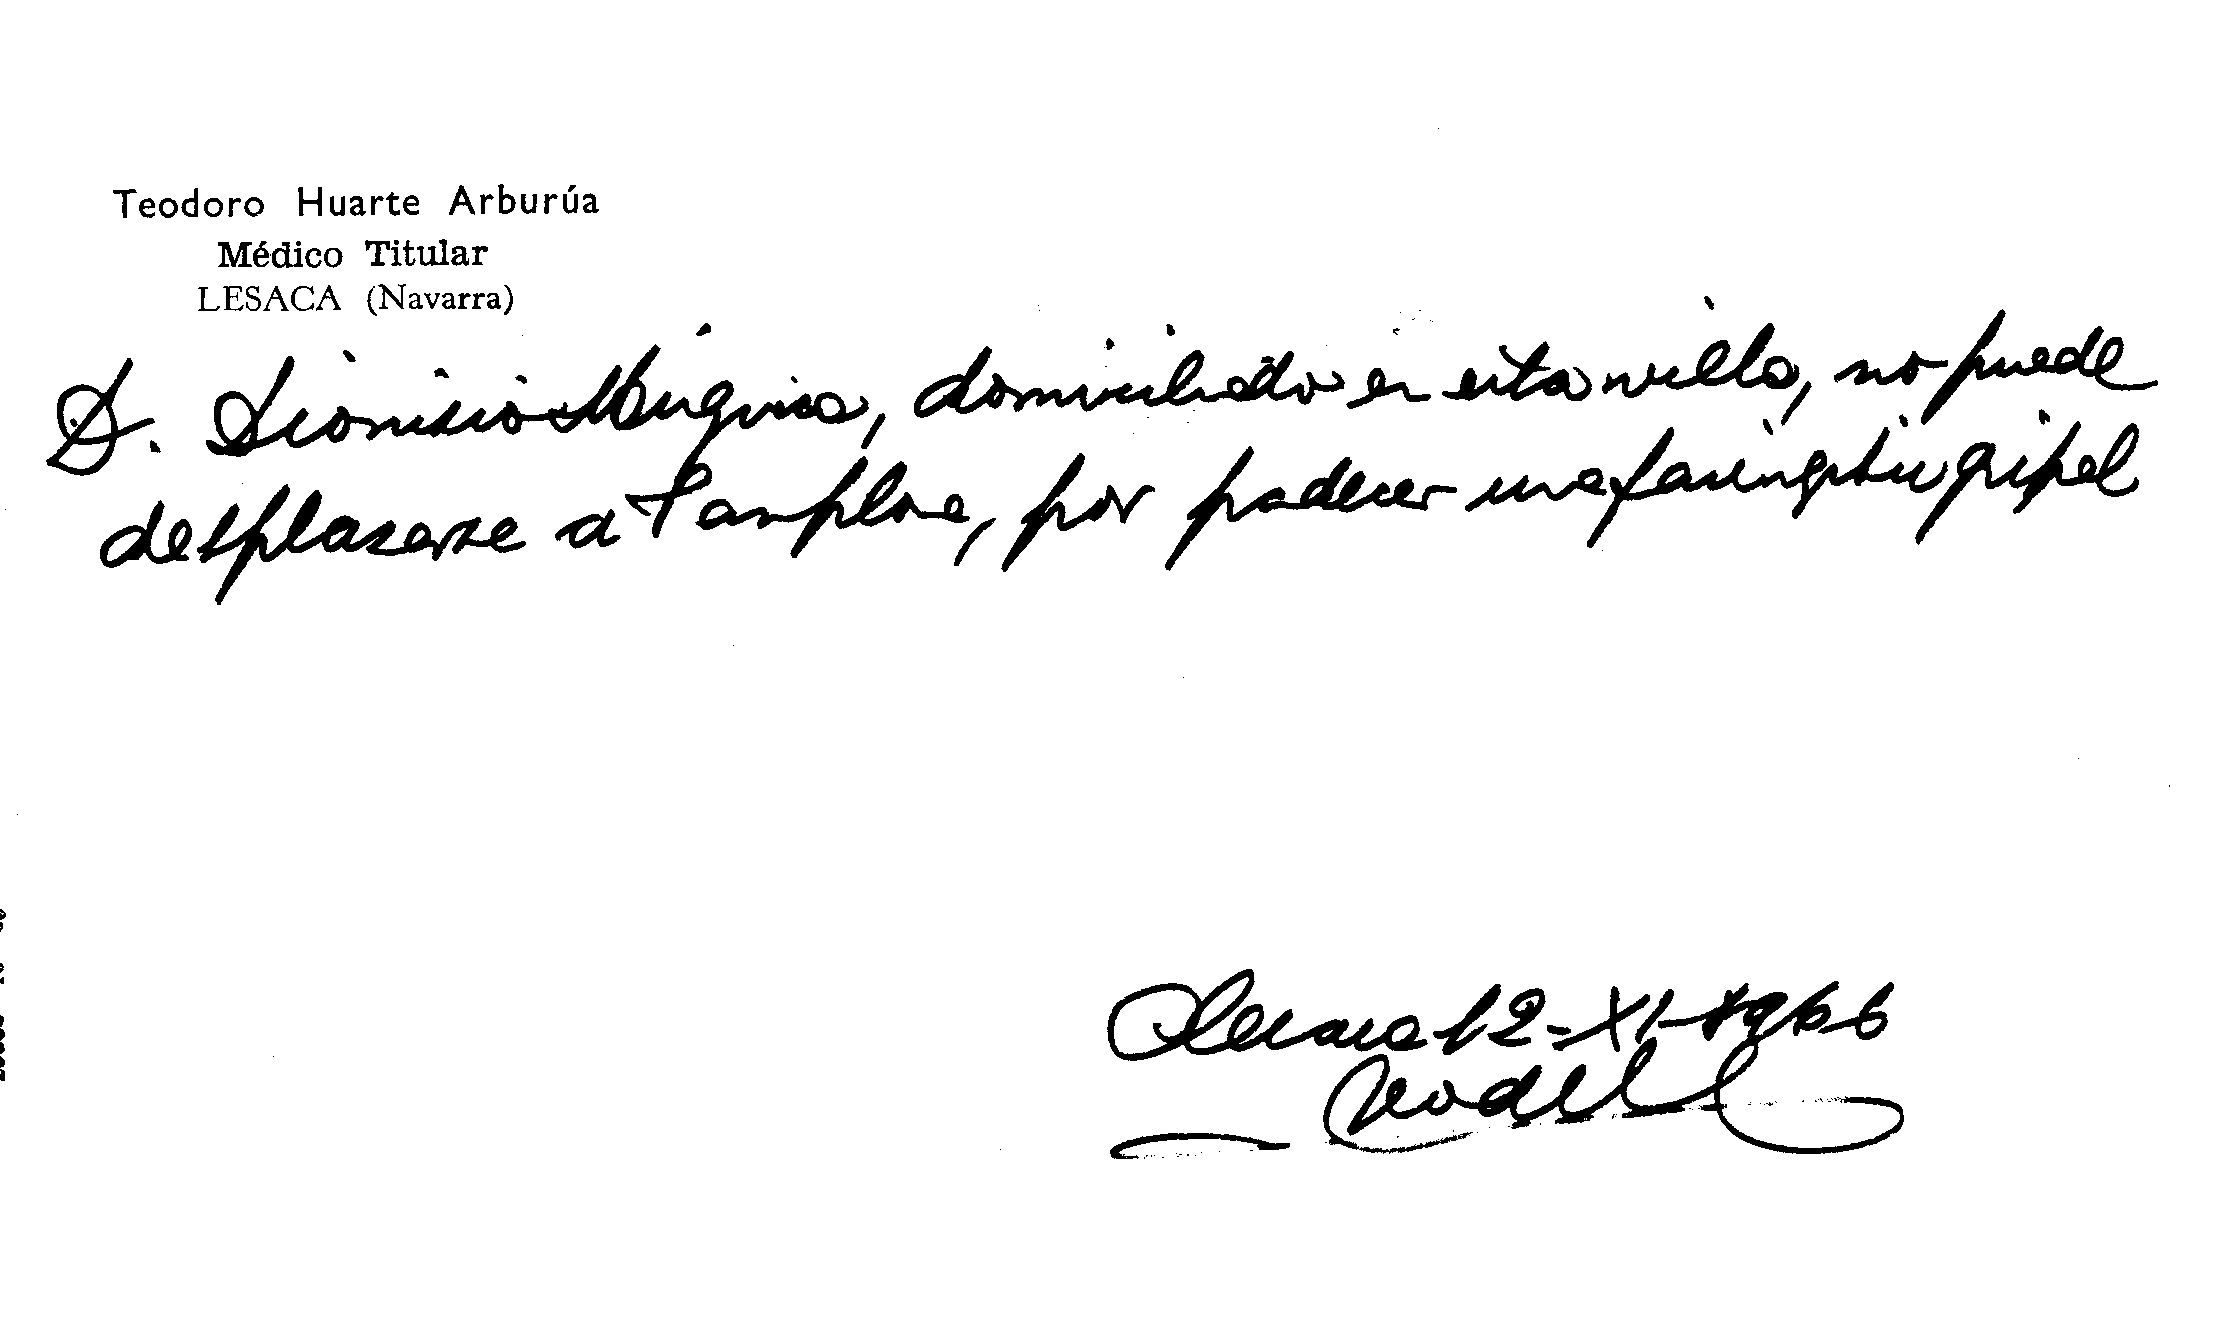 Teodoro Huarte Arburúa
Médico Titular
LESACA (Navarra)
D. Dionisio Múgica, domiciliado en esta villa, no puede
desplazarse a Pamplona, por padecer una faringitis gripal
Lesaca 12-XI-1966